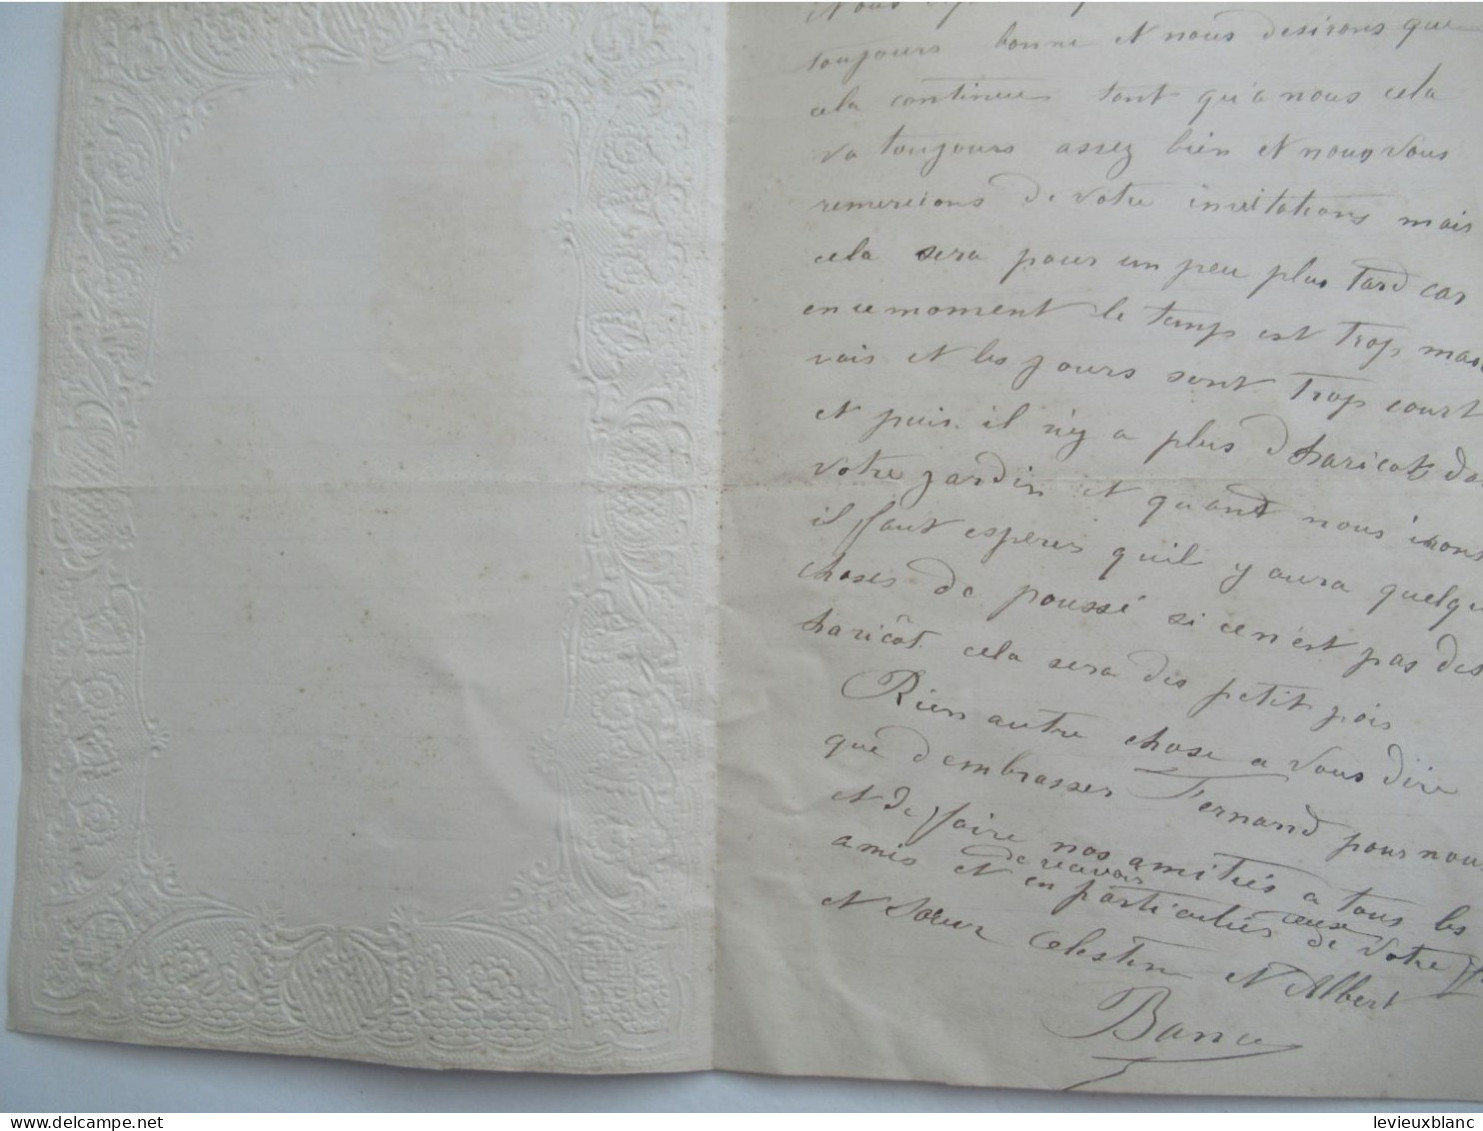 Nous
toujours bonne et nous desirons que
cela continue tant qu'a nous cela
va toujours assez bien et nous vous
remercions de votre invitations mais
cela sera pour un peu plus tard car
en ce moment le temps est trop mau
vais et les jours sont trop court
et puis il n'y a plus d'haricots da
votre jardin et quand nous iront
il faut esperer quil y aura quelqu
choses de poussé si ce n'est pas des
haricôt cela sera des petit pois
Rien autre chose a vous dire
que d'embrasser Fernand pour nou
et de faire nos amitiés a tous les
de recevoir ceux
amis et en particulier de votre
et soeur Celestine et Albert
Bance
delcampe.net
levieuxblanc